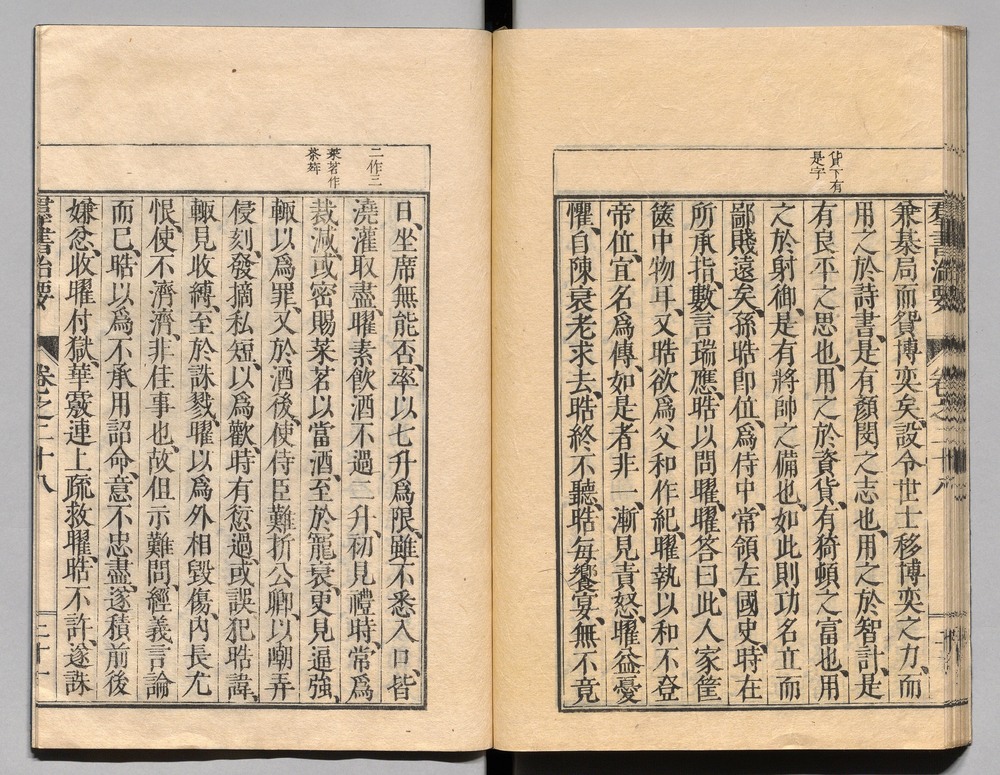 貨下有
是字
兼棊局而貿博奕矣設令世士移博奕之力而
用之於詩書是有顏閔之志也用之於智計是
有良平之思也用之於資貨有猗頓之富也用
之於射御是有將帥之備也如此則功名立而
鄙賤遠矣孫晧即位爲侍中常領左國史時在
所承指數言瑞應晧以問曜曜答曰此人家筐
篋中物耳又晧欲爲父和作紀曜執以和不登
帝位宜名爲傳如是者非一漸見責怒曜益憂
懼自陳衰老求去晧終不聽晧每饗宴無不竟
二作三
茱茗作
茶荈
日坐席無能否率以七升爲限雖不悉入口皆
澆灌取盡曜素飲酒不過二升初見禮時常爲
裁減或密賜茱茗以當酒至於寵衰更見逼強
輙以爲罪又於酒後使侍臣難折公卿以嘲弄
侵刻發摘私短以爲歡時有愆過或誤犯晧諱
輙見收縛至於誅戮曜以爲外相毀傷內長尤
恨使不濟濟非佳事也故但示難問經義言論
而已晧以爲不承用詔命意不忠盡遂積前後
嫌忿收曜付獄華覈連上疏救曜晧不許遂誅
羣書治要 卷之二十八 三十一